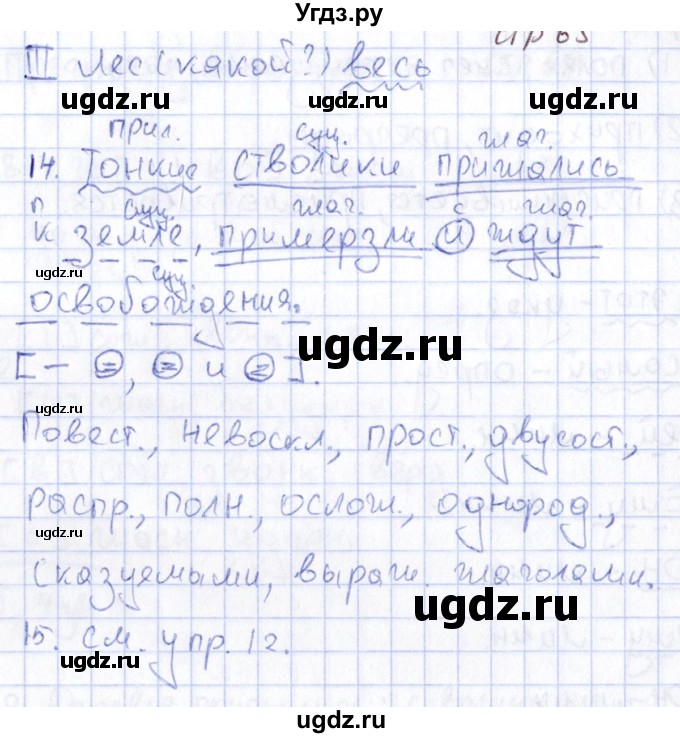 Угдз.ру
III Лес (какой?) весь
ugdz.ru ugdz.ru
прил. сущ. глаг.
14. Тонкие стволики прижались
п сущ. глаг. с глаг.
к земле, примерзли и ждут
ugdz.ru сущ. ugdz.ru
освобождения.
ugdz.ru
[– =, = и =].
Повест., невоскл., прост., двусост.,
ugdz.ru
распр., полн., ослож., однород.,
ugdz.ru
сказуемыми, выраж. глаголами.
ugdz.ru
15. см. упр. 12.
ugdz.ru ugdz.ru
ugdz.ru